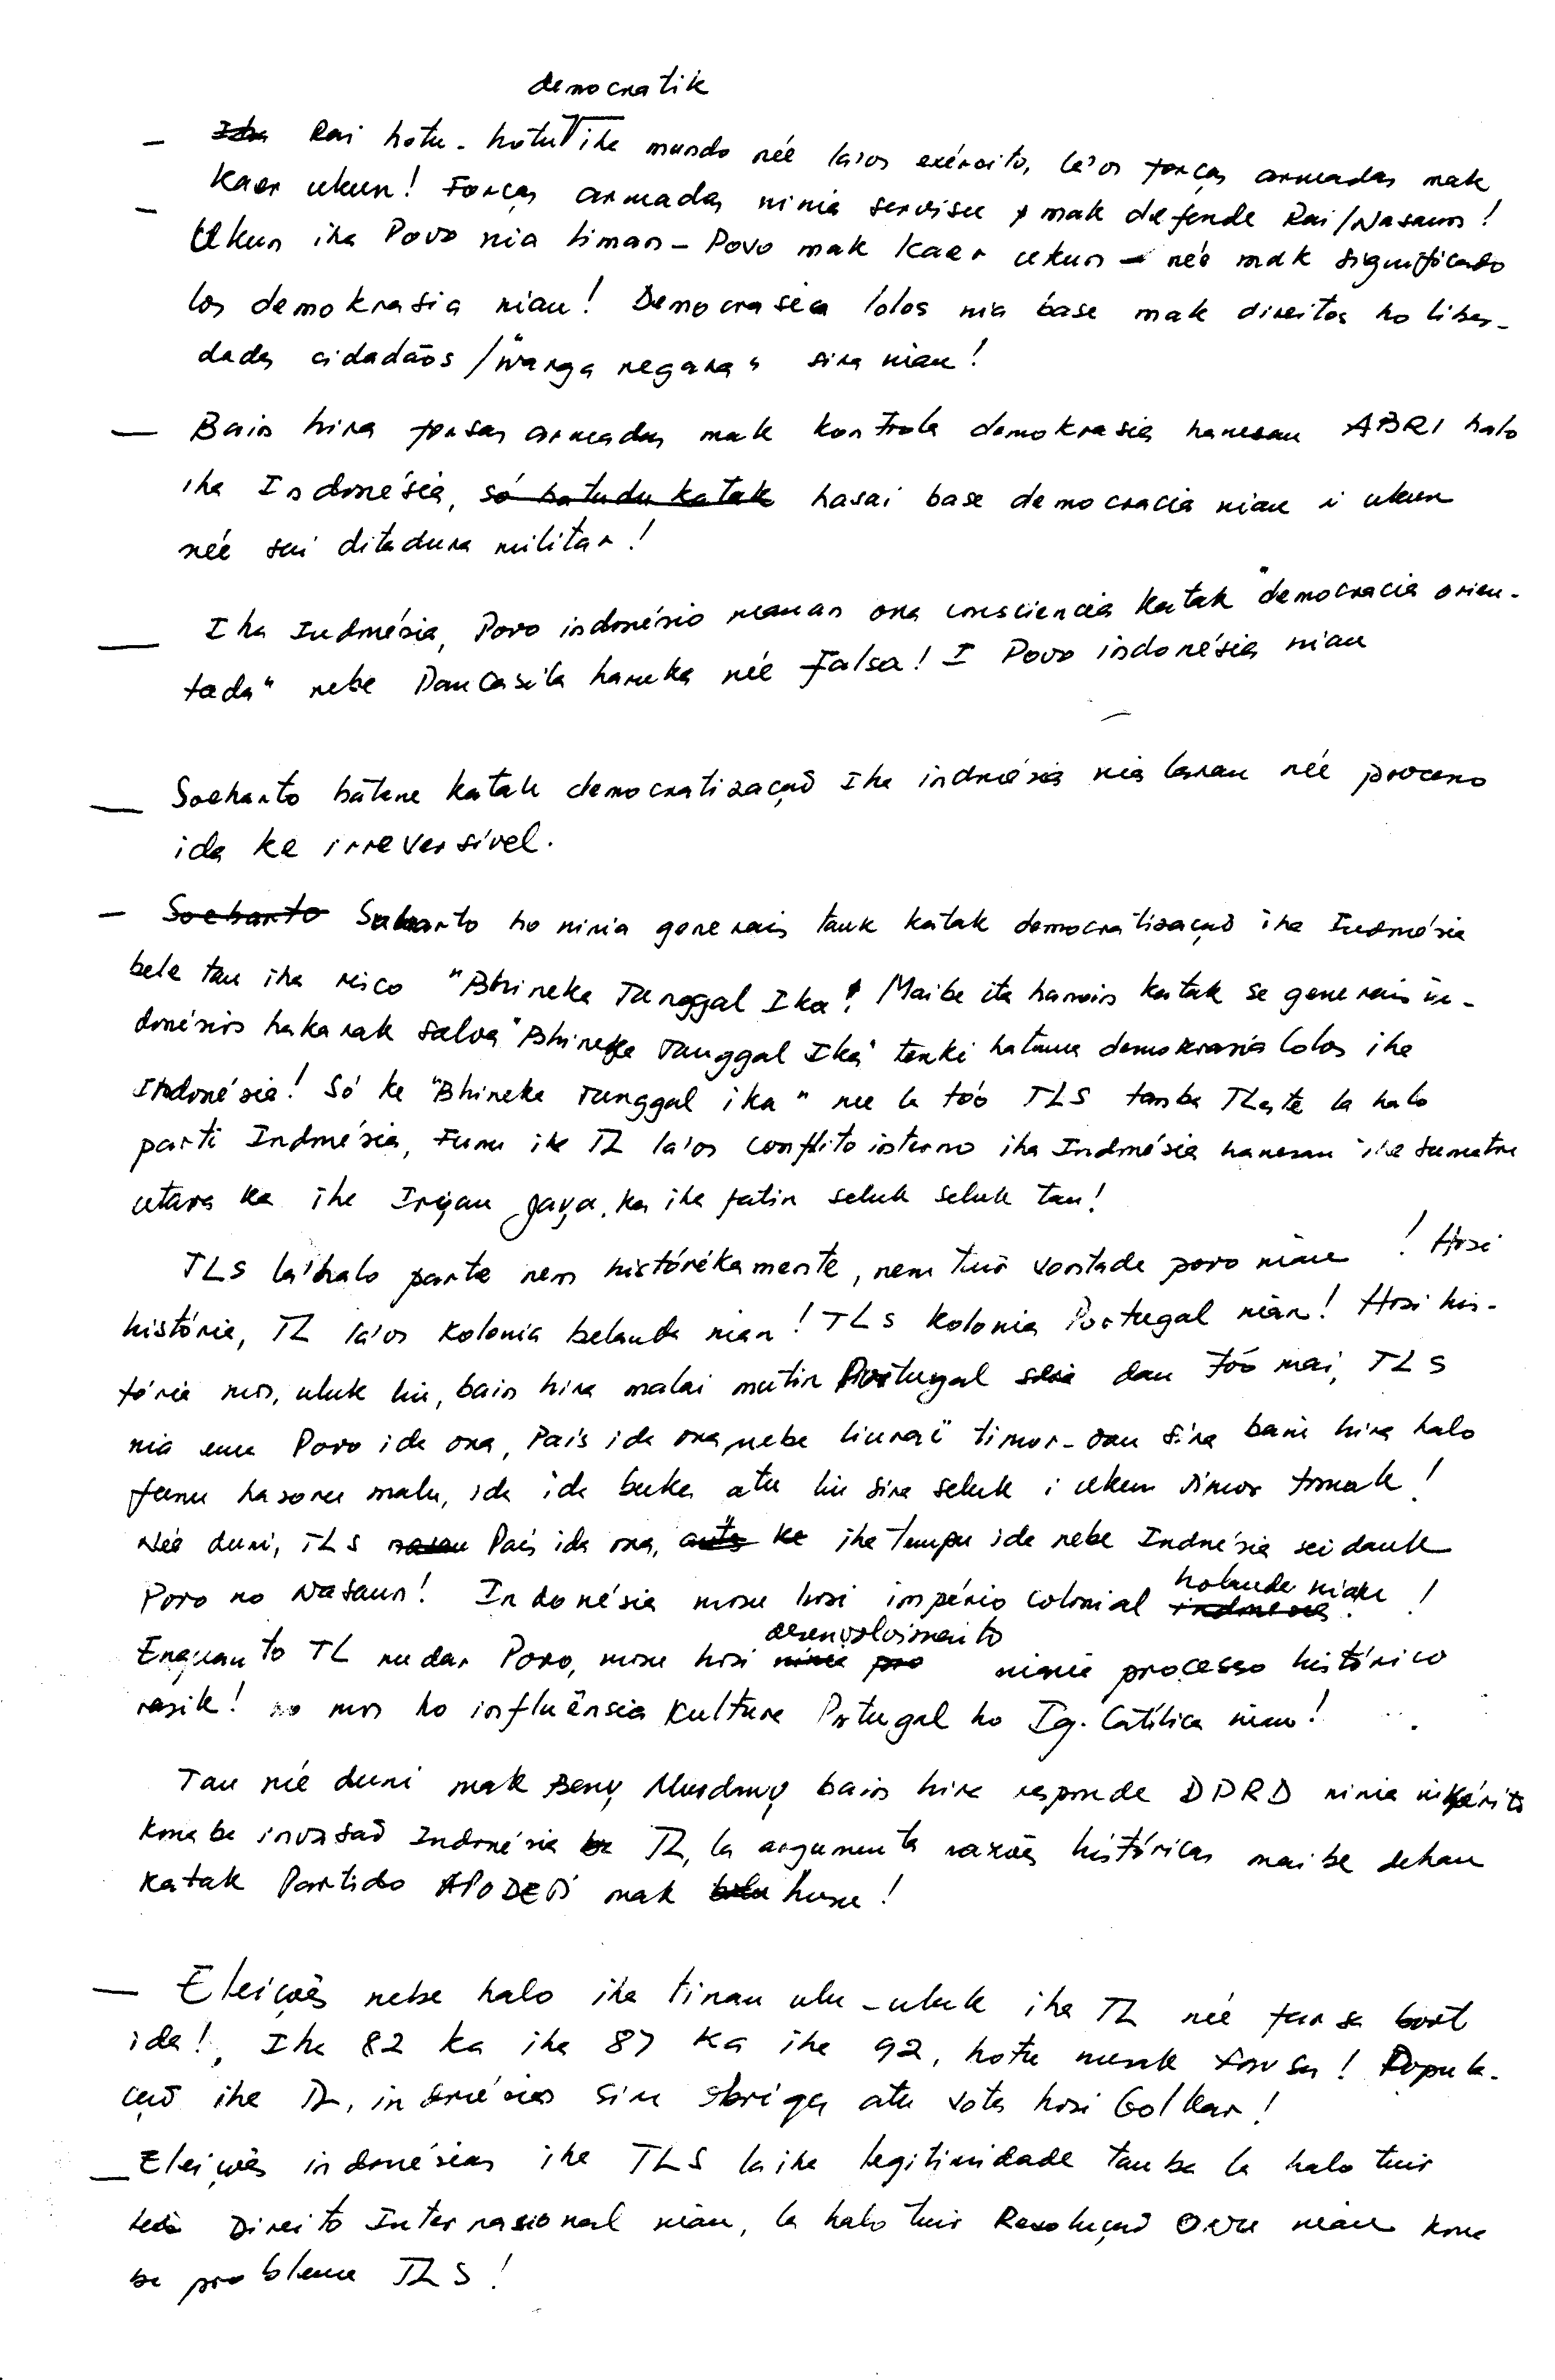 democratik
— Iha Rai hotu-hotu iha mundo née la'os exército, la'os forças armadas mak
kaer ukun! Forças armadas ninia servisu mak defende Rai/Nasaun!
— Ukun iha Povo nia liman - Povo mak kaer ukun - née mak significado
los demokrasia nian! Democrasia lolos nia base mak direitos ho liber-
dades cidadãos / "warga negara" sira nian!
— Bain hira forsas armadas mak kontrola demokrasia hanesan ABRI halo
iha Indonésia, só hatudu katak hasai base democracia nian i ukun
née sai ditadura militar!
— Iha Indonésia, Povo indonésio manan ona consciencia katak "democracia orien-
tada" nebe Pancasila haruka née falsa! I Povo indonésia nian
— Soeharto hatene katak democratização Iha indonésia nia laran née processo
ida ke irreversível.
— Soeharto Suharto ho ninia generais tauk katak democratização iha Indonésia
bele tau iha risco "Bhineka Tunggal Ika"! Maibe ita hanoin katak se generais in-
donésios hakarak salva "Bhineka Tunggal Ika" tenki hatama demokrasia lolos iha
Indonésia! Só ke "Bhineka Tunggal ika" nee la tóo TLS tanba TLeste la halo
parti Indonésia, Funu iha TL la'os conflito interno iha Indonésia hanesan iha Sumatra
utara ka iha Irian Jaya, ka iha fatin seluk seluk tan!
TLS la'halo parte nem histórikamente, nem tuir vontade povo nian! Hosi
história, TL la'os kolonia belanda nian! TLS kolonia Portugal nian! Hosi his-
tória mos, uluk liu, bain hira malai mutin Portugal dau tóo mai, TLS
nia emu Povo ida ona, País ida ona, nebe liurai timor-oan sira bain hira halo
funu hasoru malu, ida ida buka atu liu sira seluk i ukun Timor tomak!
Née duni, TLS nasau País ida ona, antes ke iha tempu ida nebe Indonésia seidauk
Povo no Nasaun! Indonésia mosu hosi império colonial indonesia holanda nian!
Enquanto TL nudar Povo, mosu hosi ninia pro desenvolvimento ninia processo histórico
rasik! no mos ho influênsia kultura Portugal ho Ig. Católica nian!
Tan née duni mak Beny Murdany bain hira responde DPRD ninia
kona ba invasão Indonésia ba TL, la argumenta razões históricas maibe dehan
katak Partido APODETI mak husu!
— Eleições nebe halo iha tinan ulu-uluk iha TL née farsa boot
ida! Iha 82 ka iha 87 ka iha 92, hotu farsa! Popula-
ção iha TL, indonésios sira obriga atu vota hosi Golkar!
— Eleições indonésias iha TLS laiha legitimidade tanba la halo tuir
Direito Internasional nian, la halo tuir Resolução ONU nian kona
ba problema TLS!